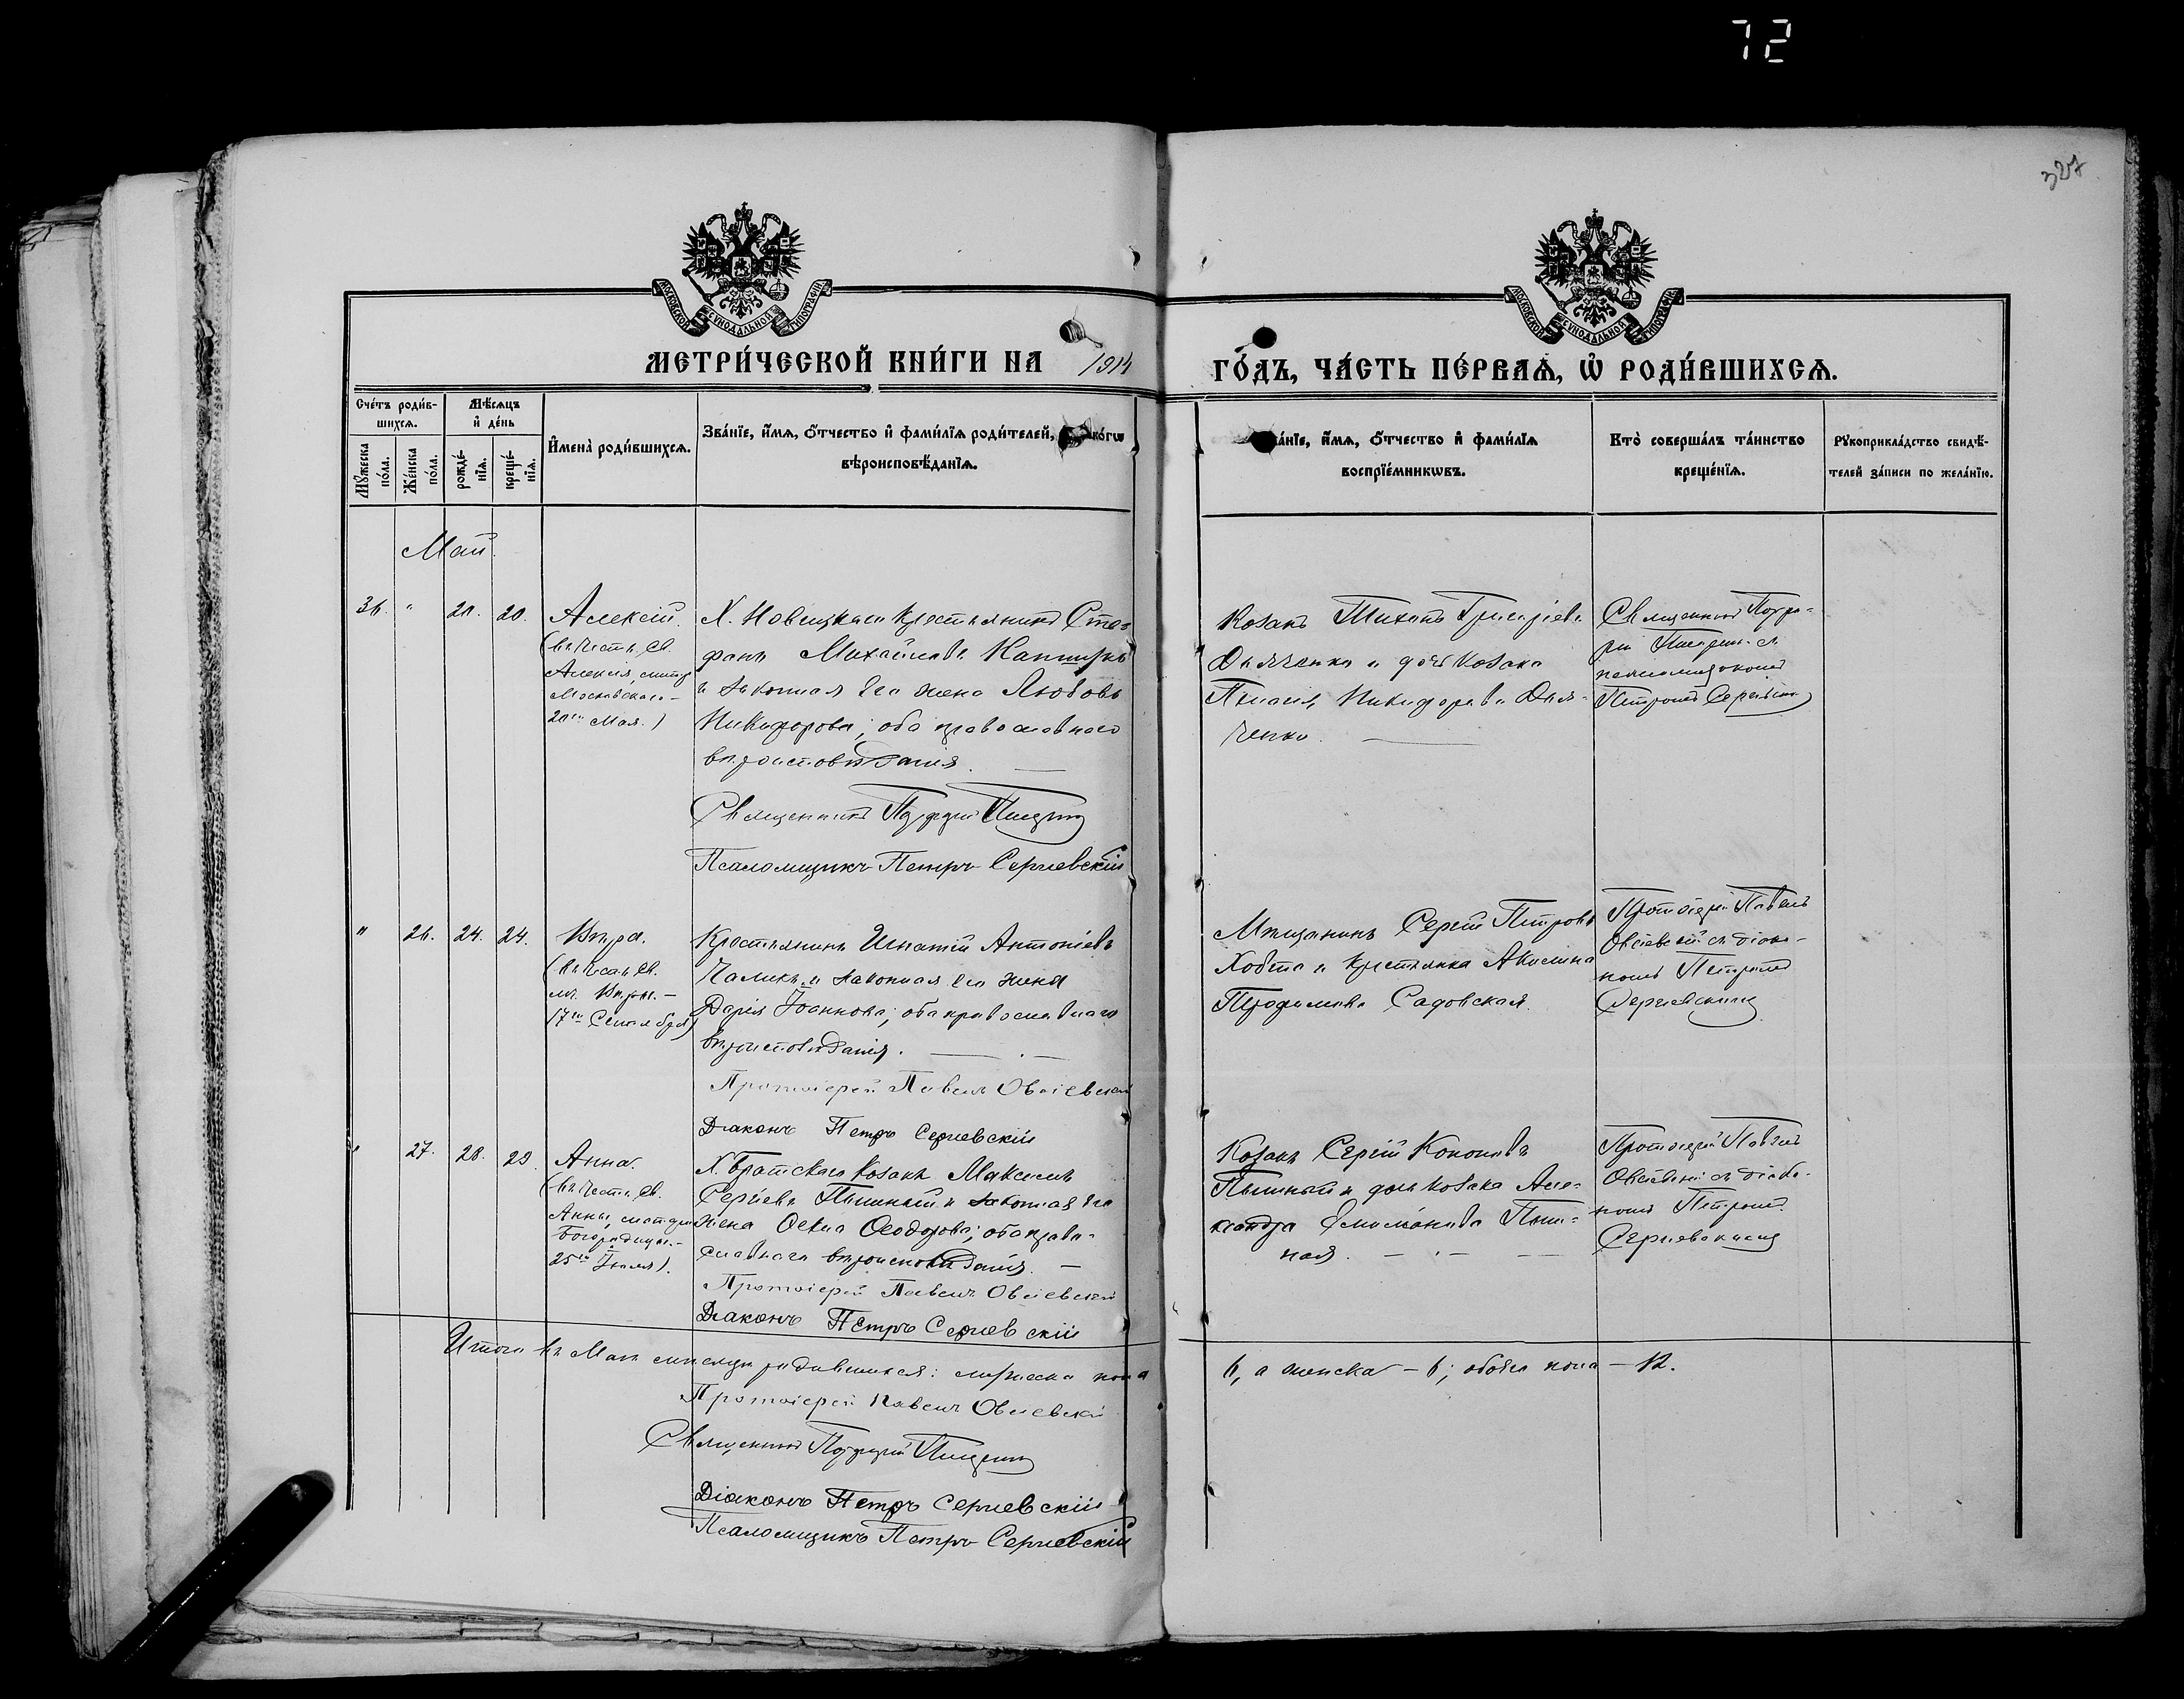 72
327
МОСКОВСКОЙ СѴНОДАЛЬНОЙ ТИПОГРАФІИ
МОСКОВСКОЙ СѴНОДАЛЬНОЙ ТИПОГРАФІИ
МЕТРИ́ЧЕСКОЙ КНИ́ГИ НА 1914
ГО́ДЪ, ЧА́СТЬ ПЕ́РВАѦ, Ѡ҆ РОДИ́ВШИХСѦ.
Сче́тъ роди́в-
шихсѧ.
Мꙋ́жеска по́ла.
Же́нска по́ла.
Мѣ́сѧцъ
и҆ де́нь
рожде́-
нїѧ.
креще́-
нїѧ.
И҆мена̀ роди́вшихсѧ.
Зва́нїе, и҆́мѧ, ѻ҆́тчество и҆ фами́лїѧ роди́телей, ко́гѡ
вѣроисповѣ́данїѧ.
а́нїе, и҆́мѧ, ѻ҆́тчество и҆ фами́лїѧ
воспрїе́мникѡвъ.
Кто̀ соверша́лъ та́инство
креще́нїѧ.
Рꙋкоприкла́дство свидѣ́-
телей за́писи по жела́нїю.
Май
36. " 20. 20.
Алексій.
(въ честь св.
Алексія, митр.
Московскаго –
20го Мая.)
Х. Новицкаго крестьянинъ Сте-
фанъ Михайловъ
и законная его жена Любовь
Никифорова; оба православнаго
вѣроисповѣданія.
Священникъ
Псаломщикъ Петръ Сергіевскій
Козакъ Тихонъ Григоріевъ
Дьяченко и дочь козака
Никифорова Дья-
ченко.
Священникъ
съ
псаломщикомъ
Петромъ Сергіевскимъ
" 26. 24. 24.
Вѣра.
(въ честь св.
мч. Вѣры. –
17го Сентября)
Крестьянинъ Игнатій Антоніевъ
и законная его жена
Дарія Іоаннова; оба православнаго
вѣроисповѣданія.
Протоіерей Павелъ Овсіевскій
Діаконъ Петръ Сергіевскій
Мѣщанинъ Сергій Петровъ
Хобта и крестьянка Акилина
Трофимова Садовская.
Протоіерей Павелъ
Овсіевскій съ діако-
номъ Петромъ
Сергіевскимъ
" 27. 28. 29.
Анна.
(въ честь св.
Анны, матери
Богородицы. –
25го Іюля).
Х. Братскаго козакъ Максимъ
Сергіевъ Пышный и законная его
жена Ѳекла Ѳеодорова; оба право-
славнаго вѣроисповѣданія. –
Протоіерей Павелъ Овсіевскій
Діаконъ Петръ Сергіевскій
Козакъ Сергій Кононовъ
Пышный и дочь козака Але-
ксандра Пыш-
ная.
Протоіерей Павелъ
Овсіевскій съ діако-
номъ Петромъ
Сергіевскимъ
Итого въ Маѣ мѣсяцѣ родившихся: мужеска пола
6, а женска – 6; обоего пола – 12.
Протоіерей Павелъ Овсіевскій
Священникъ
Діаконъ Петръ Сергіевскій
Псаломщикъ Петръ Сергіевскій